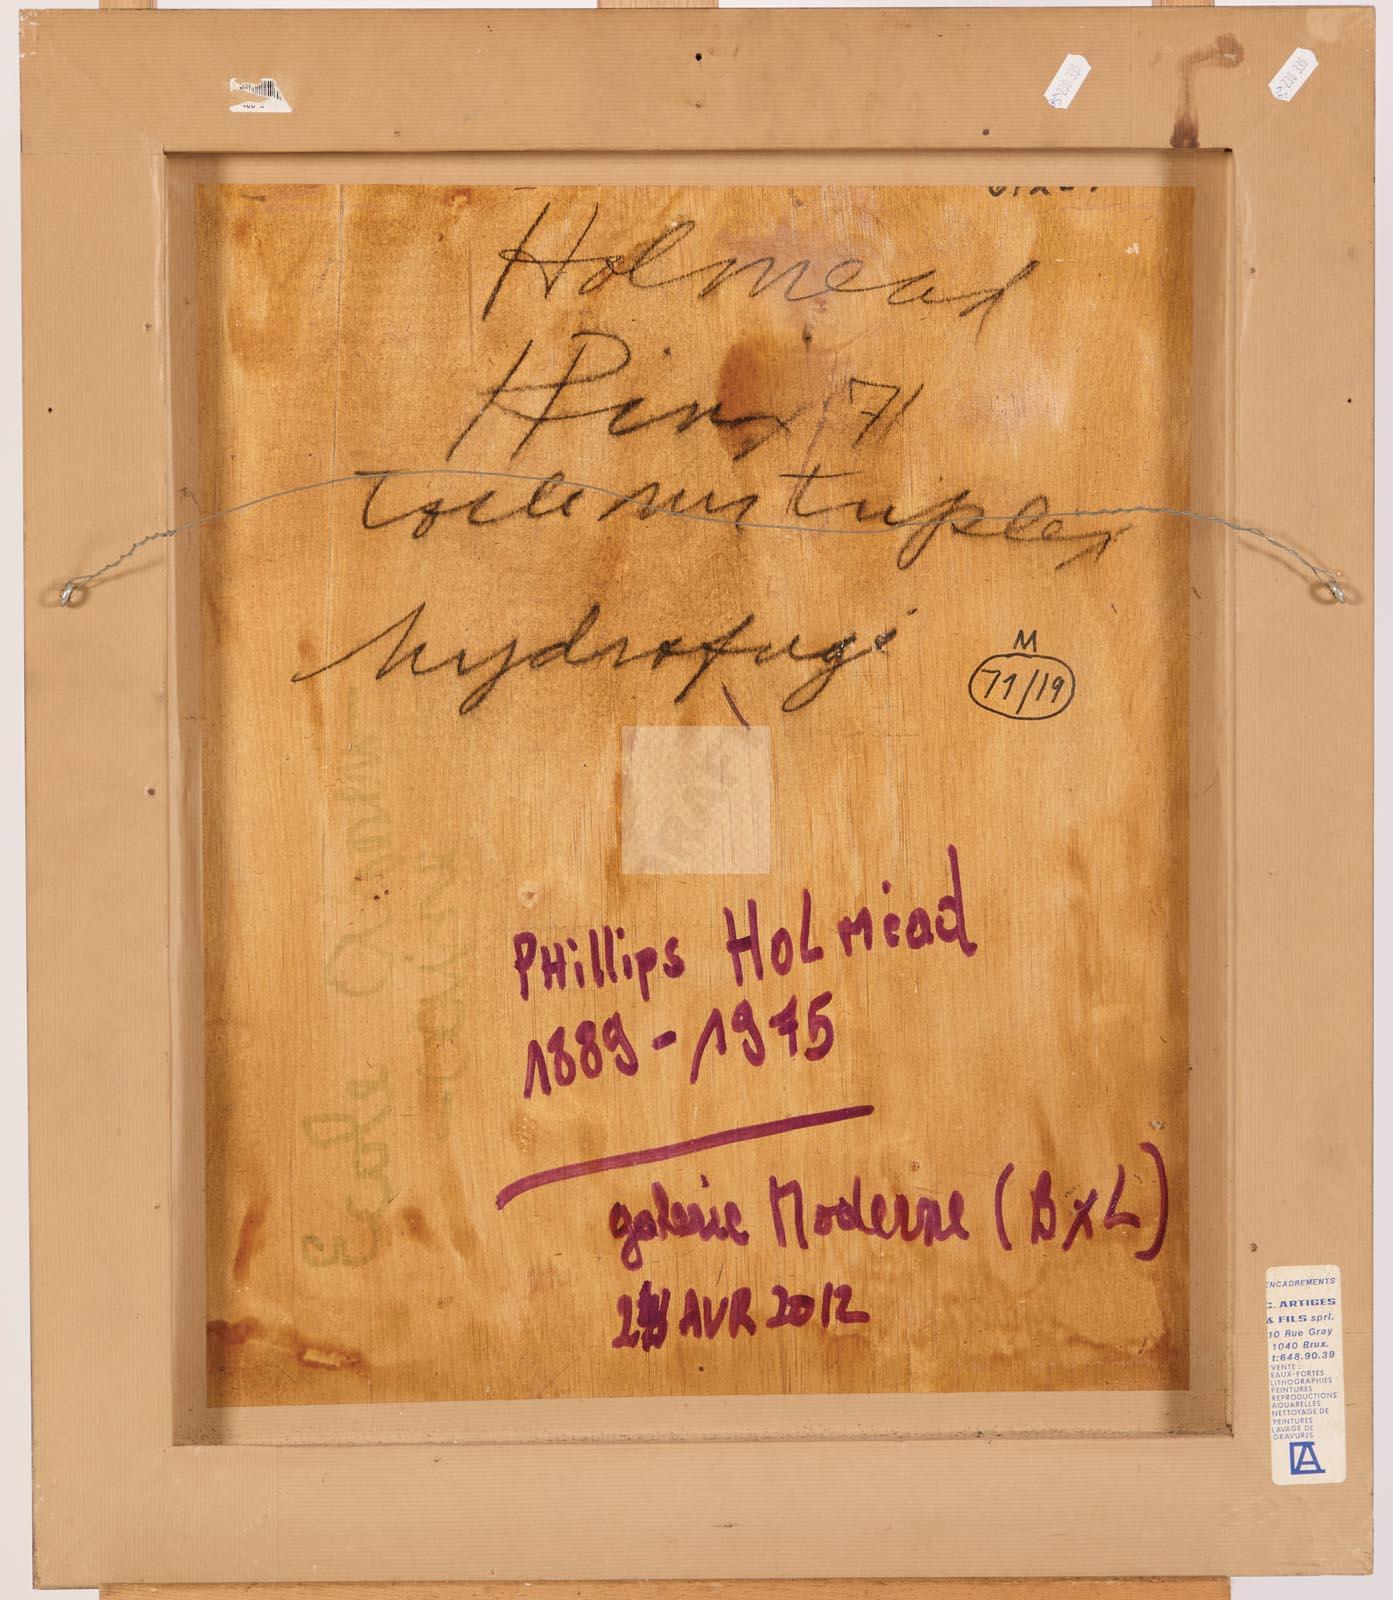 230 335
230 335
Holmead
Pinx 71
Toile sur triplex
hydrofugé
M
71/19
Phillips HOLMEAD
1889-1975
galerie Moderne (BXL)
AVR 2012
ENCADREMENTS
C. ARTIGES
& FILS sprl.
10 Rue Gray
1040 Brux.
t:648.90.39
VENTE :
EAUX-FORTES
LITHOGRAPHIES
PEINTURES
REPRODUCTIONS
AQUARELLES
NETTOYAGE DE
PEINTURES
LAVAGE DE
GRAVURES